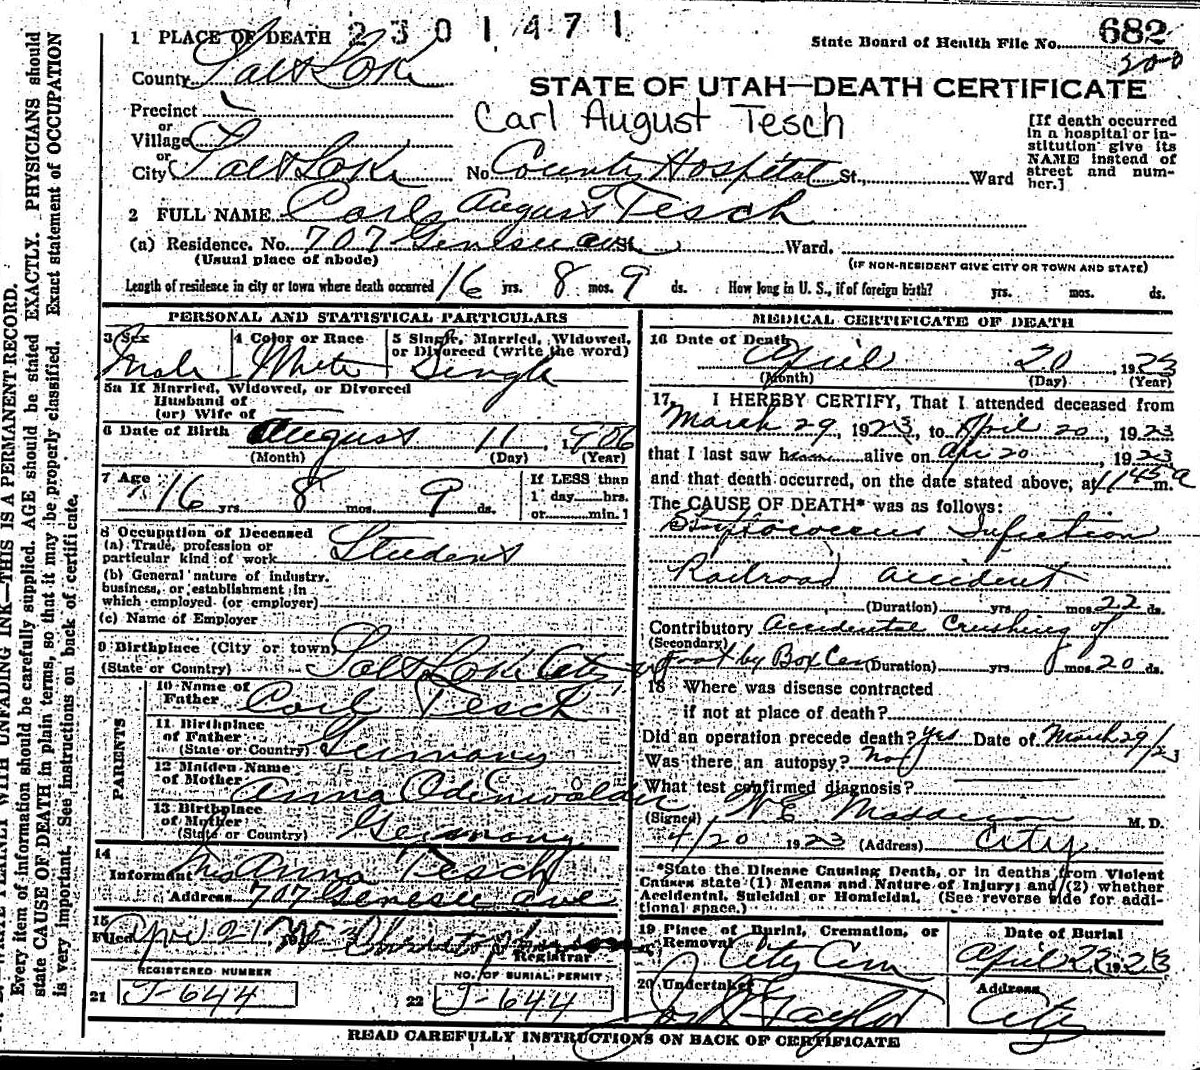 WRITE PLAINLY WITH UNFADING INK—THIS IS A PERMANENT RECORD.
Every item of information should be carefully supplied. AGE should be stated EXACTLY. PHYSICIANS should
state CAUSE OF DEATH in plain terms, so that it may be properly classified. Exact statement of OCCUPATION
is very important. See instructions on back of certificate.
1 PLACE OF DEATH 2301471
State Board of Health File No. 682
200
County Salt Lake
STATE OF UTAH—DEATH CERTIFICATE
Precinct
Carl August Tesch
or
Village
or
City Salt Lake No. County Hospital St., Ward
[If death occurred
in a hospital or in-
stitution give its
NAME instead of
street and num-
ber.]
2 FULL NAME Carl August Tesch
(a) Residence. No. 707 Genesee ave St. Ward.
(Usual place of abode)
(IF NON-RESIDENT GIVE CITY OR TOWN AND STATE)
Length of residence in city or town where death occurred 16 yrs. 8 mos. 9 ds. How long in U. S., if of foreign birth? yrs. mos. ds.
PERSONAL AND STATISTICAL PARTICULARS
3 Sex Male
4 Color or Race White
5 Single, Married, Widowed,
or Divorced (write the word)
Single
5a If Married, Widowed, or Divorced
Husband of
(or) Wife of
6 Date of Birth August 11, 1906
(Month) (Day) (Year)
7 Age 16 yrs. 8 mos. 9 ds.
If LESS than
1 day hrs.
or min.]
8 Occupation of Deceased
(a) Trade, profession or
particular kind of work Student
(b) General nature of industry,
business, or establishment in
which employed (or employer)
(c) Name of Employer
9 Birthplace (City or town)
(State or Country) Salt Lake City
PARENTS
10 Name of
Father Carl Tesch
11 Birthplace
of Father
(State or Country) Germany
12 Maiden Name
of Mother Anna Odenwalder
13 Birthplace
of Mother
(State or Country) Germany
14
Informant Mrs Anna Tesch
Address 707 Genesee ave
15
Filed Apr 21
Registrar
REGISTERED NUMBER
21 J-644
NO. OF BURIAL PERMIT
22 J-644
MEDICAL CERTIFICATE OF DEATH
16 Date of Death
April 20, 1923
(Month) (Day) (Year)
17. I HEREBY CERTIFY, That I attended deceased from
March 29, 1923, to April 20, 1923
that I last saw him alive on Apr 20, 1923
and that death occurred, on the date stated above, at 11 45 a m.
The CAUSE OF DEATH* was as follows:
Streptococcus Infection
Railroad accident
(Duration) yrs. mos. 22 ds.
Contributory Accidental Crushing of
(Secondary)
foot by Box Car (Duration) yrs. mos. 20 ds.
18 Where was disease contracted
if not at place of death?
Did an operation precede death? yes Date of March 29/23
Was there an autopsy? no
What test confirmed diagnosis?
(Signed) M. D.
4/20 1923 (Address) City
*State the Disease Causing Death, or in deaths from Violent
Causes state (1) Means and Nature of Injury; and (2) whether
Accidental, Suicidal or Homicidal. (See reverse side for addi-
tional space.)
19 Place of Burial, Cremation, or
Removal City Cem
Date of Burial
April 23 1923
20 Undertaker
Address
City
READ CAREFULLY INSTRUCTIONS ON BACK OF CERTIFICATE